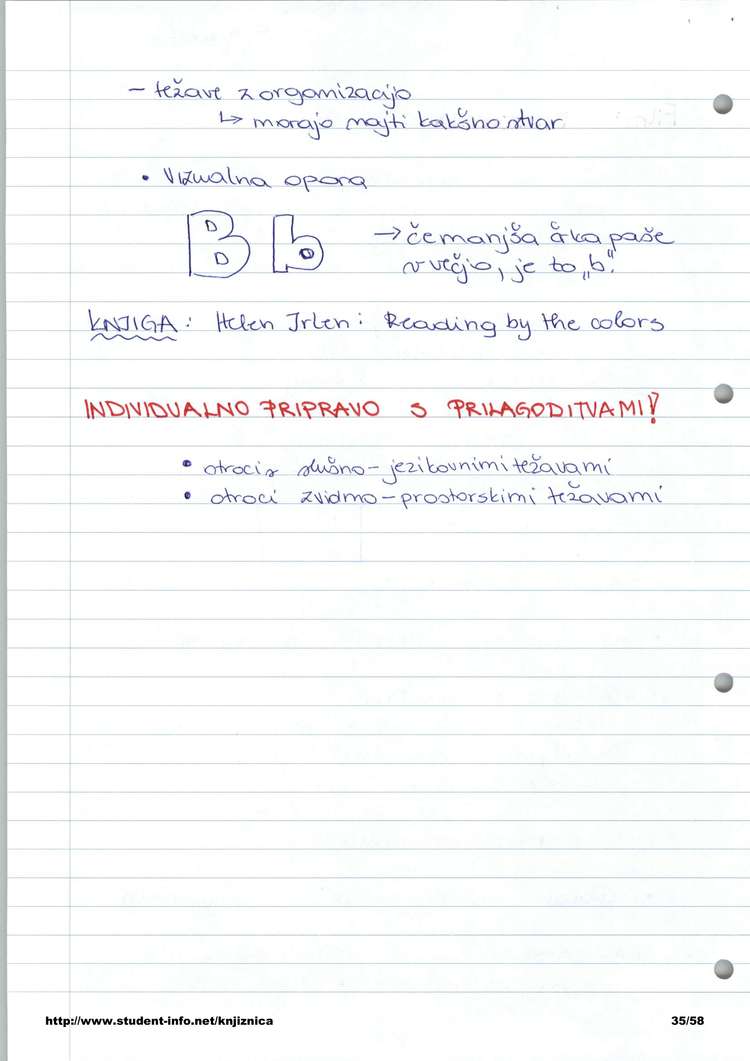 - težave z organizacijo
↳ morajo najti kakšno stvar
• Vizualna opora
B b → če manjša črka paše
v večjo, je to „b“.
KNJIGA: Helen Irlen: Reading by the colors
INDIVIDUALNO PRIPRAVO S PRILAGODITVAMI!
• otroci s slušno-jezikovnimi težavami
• otroci z vidno-prostorskimi težavami
http://www.student-info.net/knjiznica 35/58